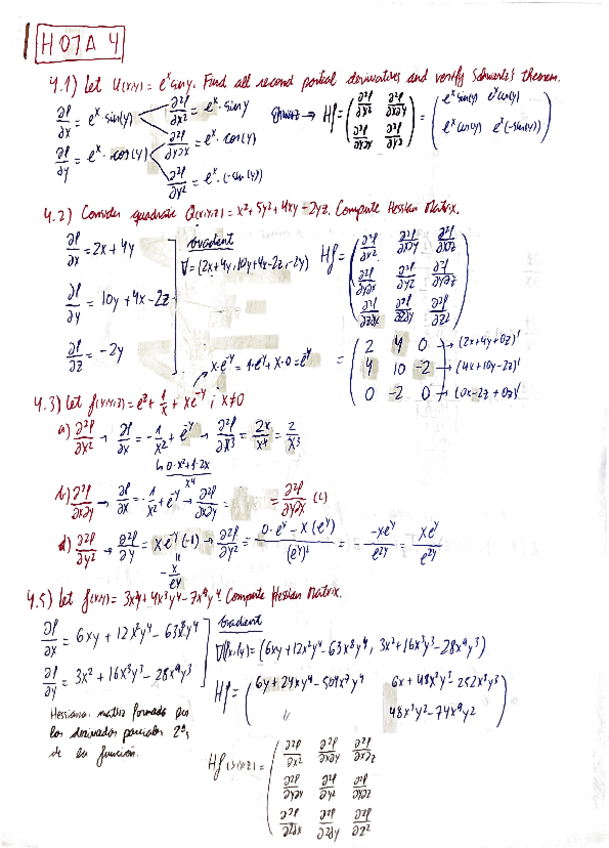 HOJA 4
4.1) Let U(x,y) = e^x sin y. Find all second partial derivatives and verify Schwartz's theorem.
∂f/∂x = e^x · sin(y)
∂²f/∂x² = e^x · sin y
∂²f/∂y∂x = e^x · cos(y)
∂f/∂y = e^x · cos(y)
∂²f/∂y² = e^x · (-sin(y))
→ Hf = ( ∂²f/∂x² ∂²f/∂x∂y ; ∂²f/∂y∂x ∂²f/∂y² ) = ( e^x sin(y) e^x cos(y) ; e^x cos(y) e^x(-sin(y)) )
4.2) Consider quadratic Q(x,y,z) = x² + 5y² + 4xy - 2yz. Compute Hessian Matrix.
∂f/∂x = 2x + 4y
∂f/∂y = 10y + 4x - 2z
∂f/∂z = -2y
Gradient
∇ = (2x+4y, 10y+4x-2z, -2y)
Hf = ( ∂²f/∂x² ∂²f/∂x∂y ∂²f/∂x∂z ; ∂²f/∂y∂x ∂²f/∂y² ∂²f/∂y∂z ; ∂²f/∂z∂x ∂²f/∂z∂y ∂²f/∂z² )
= ( 2 4 0 → (2x+4y+0z)'
4 10 -2 → (4x+10y-2z)'
0 -2 0 ) → (0x-2z+0z)'
x·e^-y = 1·e^-y + x·0 = e^-y
4.3) Let f(x,y,z) = e^z + 1/x + xe^-y ; x≠0
a) ∂²f/∂x² → ∂f/∂x = -1/x² + e^-y → ∂²f/∂x² = 2x/x⁴ = 2/x³
↳ 0·x²+1·2x / x⁴
b) ∂²f/∂x∂y → ∂f/∂x = -1/x² + e^-y → ∂²f/∂x∂y = = ∂²f/∂y∂x (c)
d) ∂²f/∂y² → ∂f/∂y = x·e^-y (-1) → ∂²f/∂y² = 0·e^y - x(e^y) / (e^y)² = = -xe^y/e^2y = xe^y/e^2y
-x/e^y
4.5) Let f(x,y) = 3x²y + 4x³y⁴ - 7x⁹y⁴. Compute Hessian Matrix.
∂f/∂x = 6xy + 12x²y⁴ - 63x⁸y⁴
∂f/∂y = 3x² + 16x³y³ - 28x⁹y³
Gradient
∇f(x,y) = (6xy + 12x²y⁴ - 63x⁸y⁴, 3x² + 16x³y³ - 28x⁹y³)
Hf = ( 6y + 24xy⁴ - 504x⁷y⁴ 6x + 48x²y³ - 252x⁸y³
" 48x³y² - 74x⁹y² )
Hessiana: matriz formada por
las derivadas parciales 2ªs
de la función.
Hf(x,y,z) = ( ∂²f/∂x² ∂²f/∂x∂y ∂²f/∂x∂z
∂²f/∂y∂x ∂²f/∂y² ∂²f/∂y∂z
∂²f/∂z∂x ∂²f/∂z∂y ∂²f/∂z²